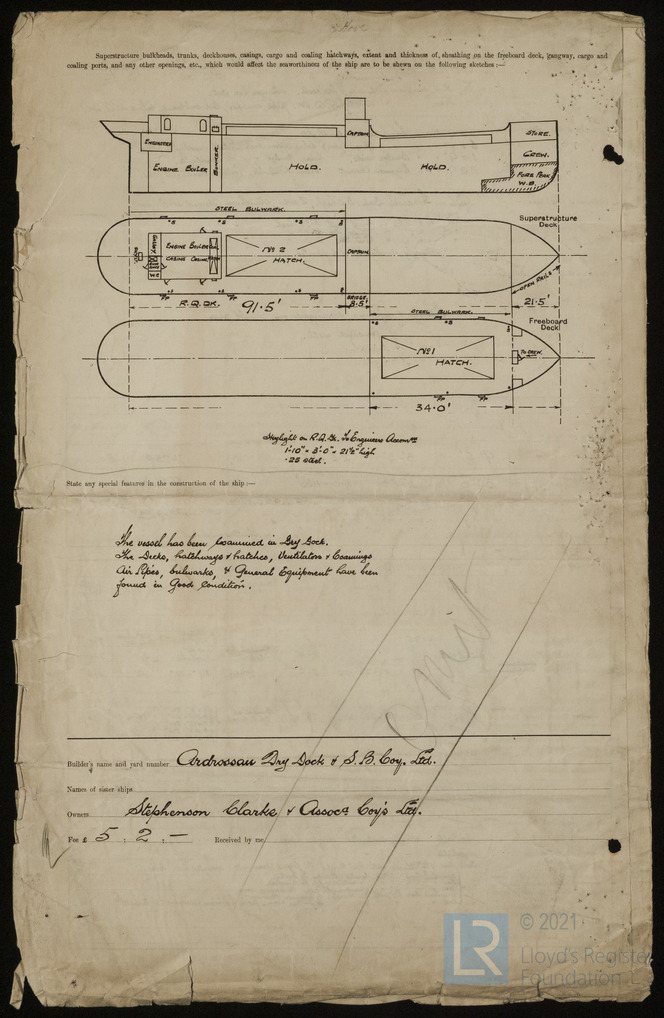 Superstructure bulkheads, trunks, deckhouses, casings, cargo and coaling hatchways, extent and thickness of, sheathing on the freeboard deck, gangway, cargo and
coaling ports, and any other openings, etc., which would affect the seaworthiness of the ship are to be shewn on the following sketches :—
ENGINEERS
ENGINE BOILER
BUNKER.
HOLD.
CAPTAIN
HOLD.
STORE.
CREW.
FORE PEAK
W.B.
STEEL BULWARK.
Superstructure
Deck.
GALLEY
ENGINE BOILER
CASING CASING
Nº 2
HATCH.
CAPTAIN.
OPEN RAILS
R.Q.DK.
91.5'
BRIDGE.
8.5'
21.5'
STEEL BULWARK.
Freeboard
Deck
Nº1
HATCH.
TO CREW.
34.0'
Skylight on R.Q.Dk. To Engineers Accomn
1'-10" × 3'-0" × 21½" high
.25 steel.
State any special features in the construction of the ship :—
The vessel has been Examined in Dry Dock.
The Decks, hatchways & hatches, Ventilators & Coamings
Air Pipes, bulwarks, & General Equipment have been
found in Good Condition.
Omit
Builder's name and yard number Ardrossan Dry Dock & S.B. Coy. Ltd.
Names of sister ships
Owners Stephenson Clarke & Assocd Coy's Ltd.
Fee £ 5 : 2 : — Received by me,
LR
© 2021
Lloyd's Register
Foundation